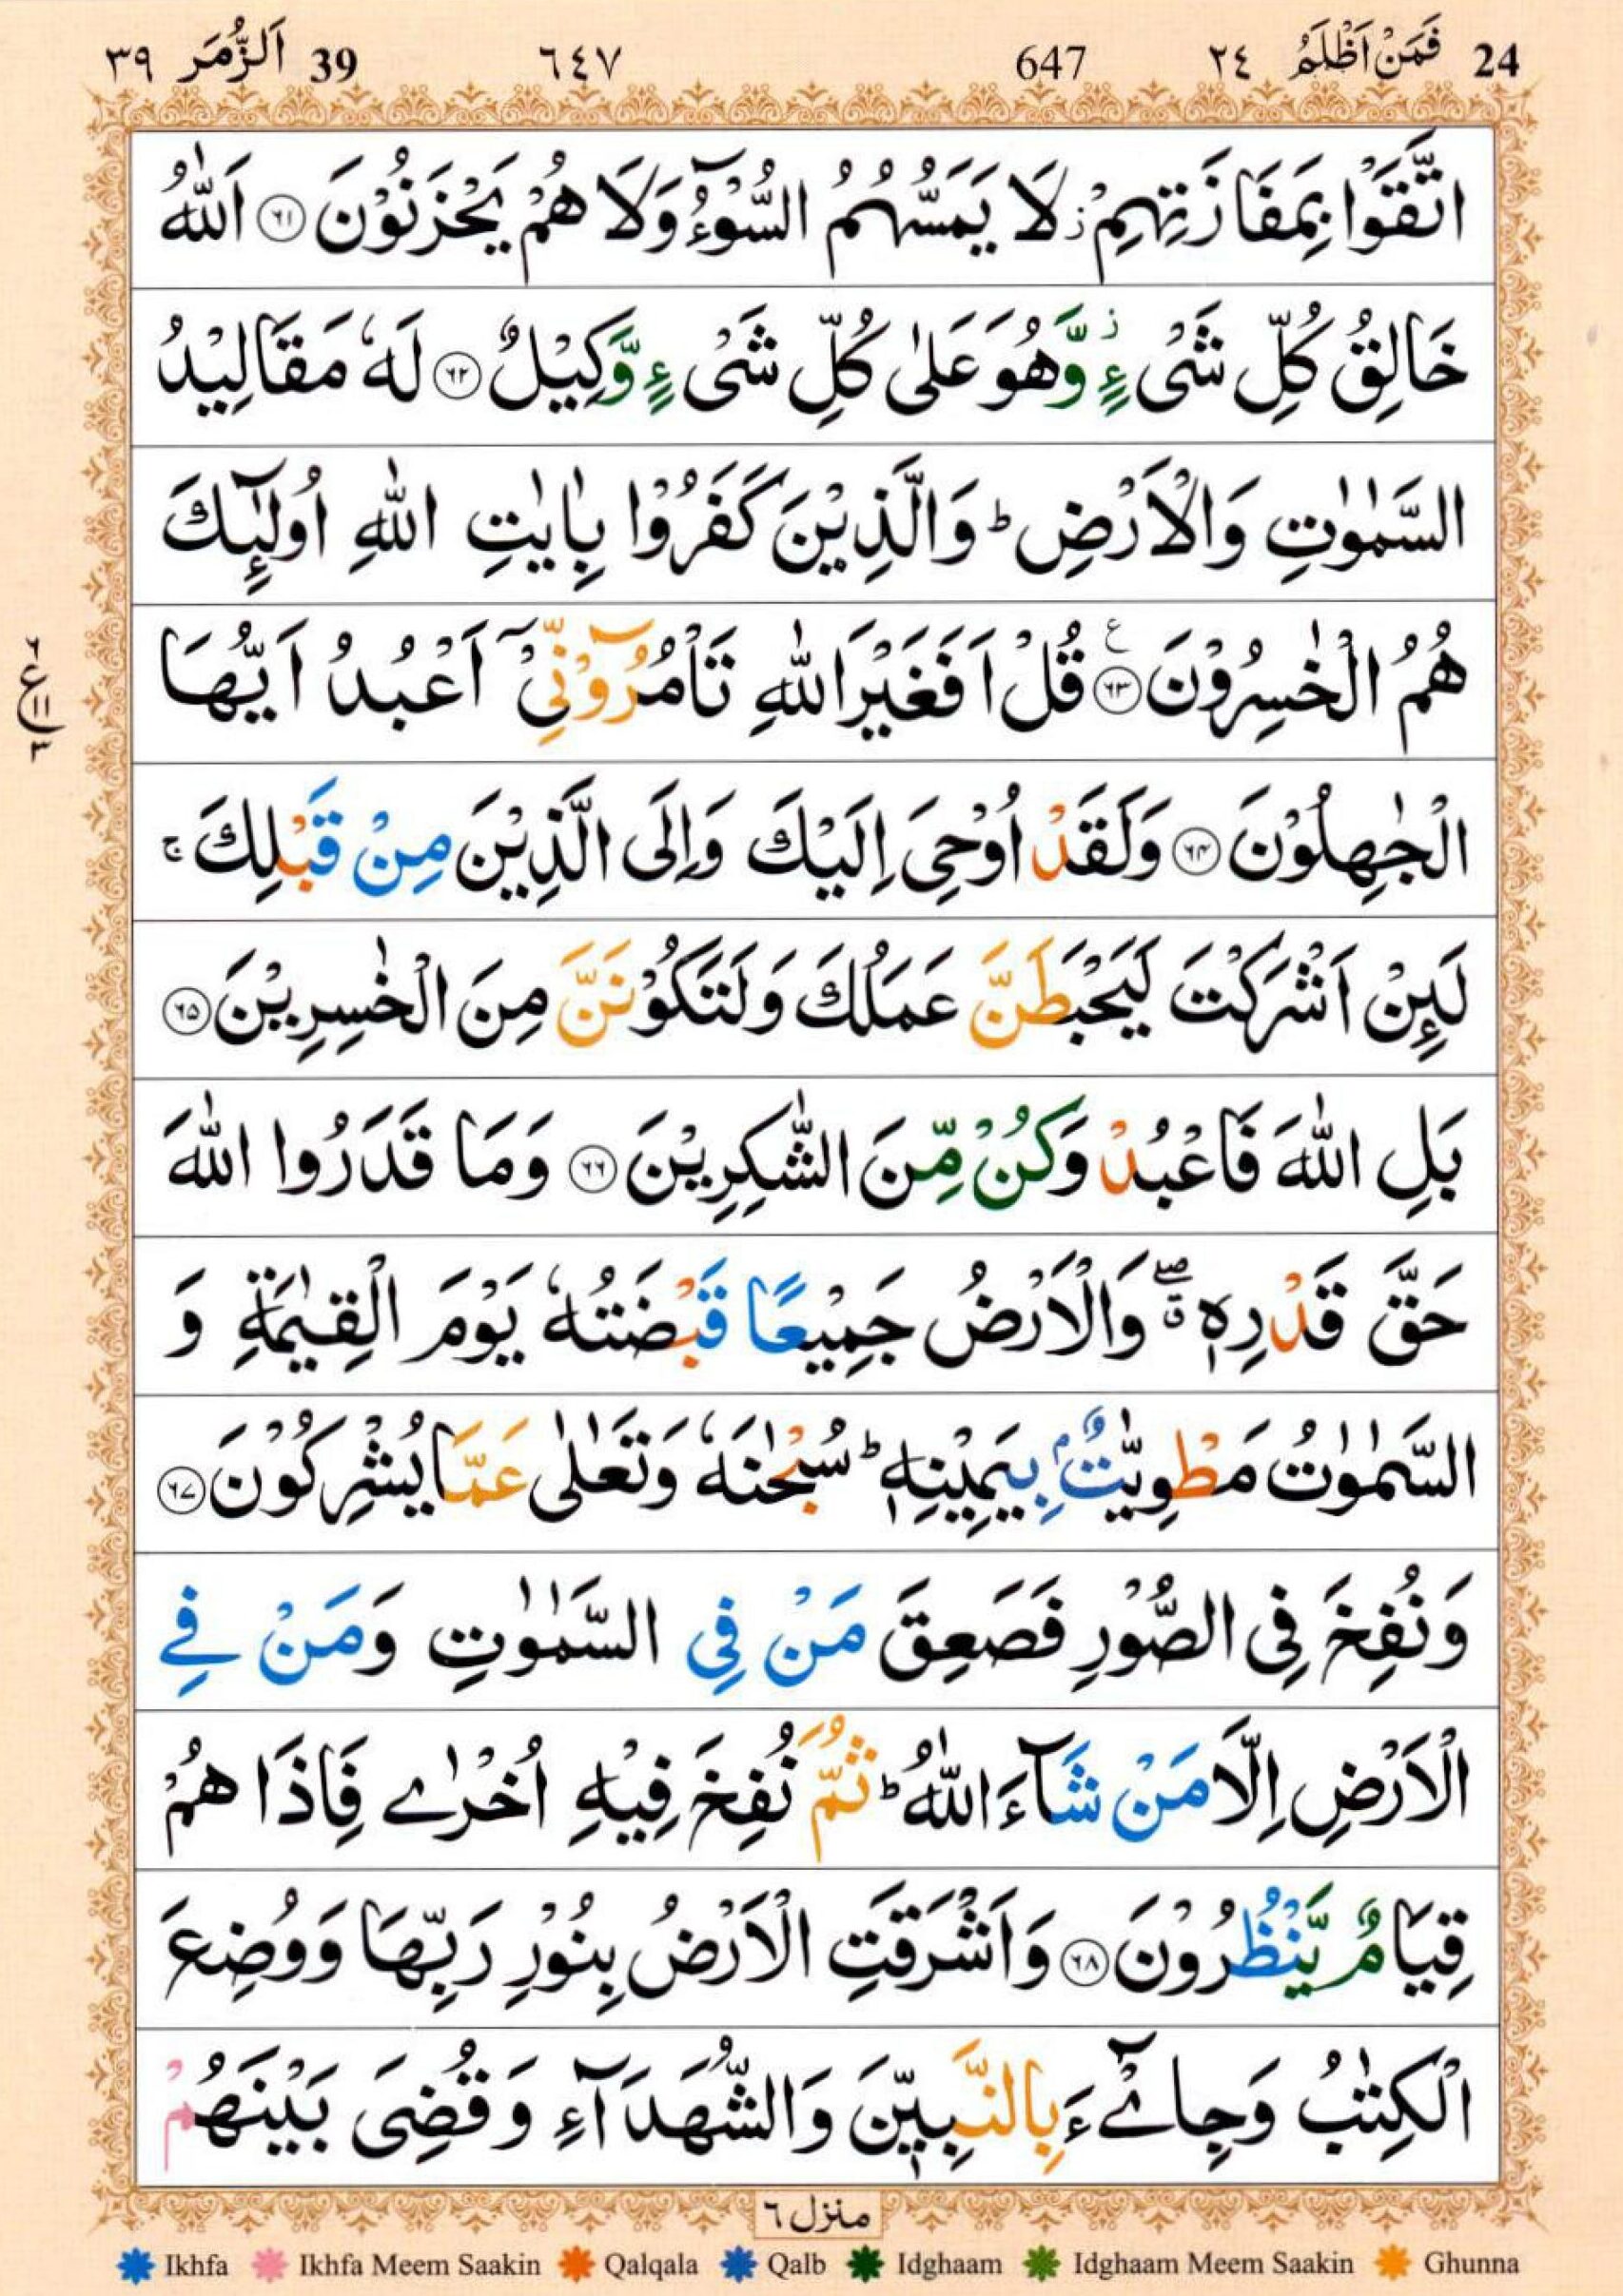 24 فَمَنْ اَظْلَمُ ٢٤ 647 ٦٤٧ 39 اَلزُّمَر ٣٩
اتَّقَوْا بِمَفَازَتِهِمْ ز لَا يَمَسُّهُمُ السُّوْٓءُ وَلَا هُمْ يَحْزَنُوْنَ ۝٦١ اَللّٰهُ
خَالِقُ كُلِّ شَیْءٍ ز وَّهُوَ عَلٰی كُلِّ شَیْءٍ وَّكِيْلٌ ۝٦٢ لَهٗ مَقَالِيْدُ
السَّمٰوٰتِ وَالْاَرْضِ ؕ وَالَّذِيْنَ كَفَرُوْا بِاٰيٰتِ اللّٰهِ اُولٰٓئِكَ
هُمُ الْخٰسِرُوْنَ ۝٦٣ ع قُلْ اَفَغَيْرَ اللّٰهِ تَاْمُرُوْٓنِّیْٓ اَعْبُدُ اَيُّهَا
ع ١١ ٣
الْجٰهِلُوْنَ ۝٦٤ وَلَقَدْ اُوْحِیَ اِلَيْكَ وَاِلَی الَّذِيْنَ مِنْ قَبْلِكَ ۚ
لَئِنْ اَشْرَكْتَ لَيَحْبَطَنَّ عَمَلُكَ وَلَتَكُوْنَنَّ مِنَ الْخٰسِرِيْنَ ۝٦٥
بَلِ اللّٰهَ فَاعْبُدْ وَكُنْ مِّنَ الشّٰكِرِيْنَ ۝٦٦ وَمَا قَدَرُوا اللّٰهَ
حَقَّ قَدْرِهٖ ۖق وَالْاَرْضُ جَمِيْعًا قَبْضَتُهٗ يَوْمَ الْقِيٰمَةِ وَ
السَّمٰوٰتُ مَطْوِيّٰتٌۢ بِيَمِيْنِهٖ ؕ سُبْحٰنَهٗ وَتَعٰلٰی عَمَّا يُشْرِكُوْنَ ۝٦٧
وَنُفِخَ فِی الصُّوْرِ فَصَعِقَ مَنْ فِی السَّمٰوٰتِ وَمَنْ فِے
الْاَرْضِ اِلَّا مَنْ شَآءَ اللّٰهُ ؕ ثُمَّ نُفِخَ فِيْهِ اُخْرٰے فَاِذَا هُمْ
قِيَامٌ يَّنْظُرُوْنَ ۝٦٨ وَاَشْرَقَتِ الْاَرْضُ بِنُوْرِ رَبِّهَا وَوُضِعَ
الْكِتٰبُ وَجِایْٓءَ بِالنَّبِيّٖنَ وَالشُّهَدَآءِ وَقُضِیَ بَيْنَهُمْ
منزل ٦
Ikhfa Ikhfa Meem Saakin Qalqala Qalb Idghaam Idghaam Meem Saakin Ghunna